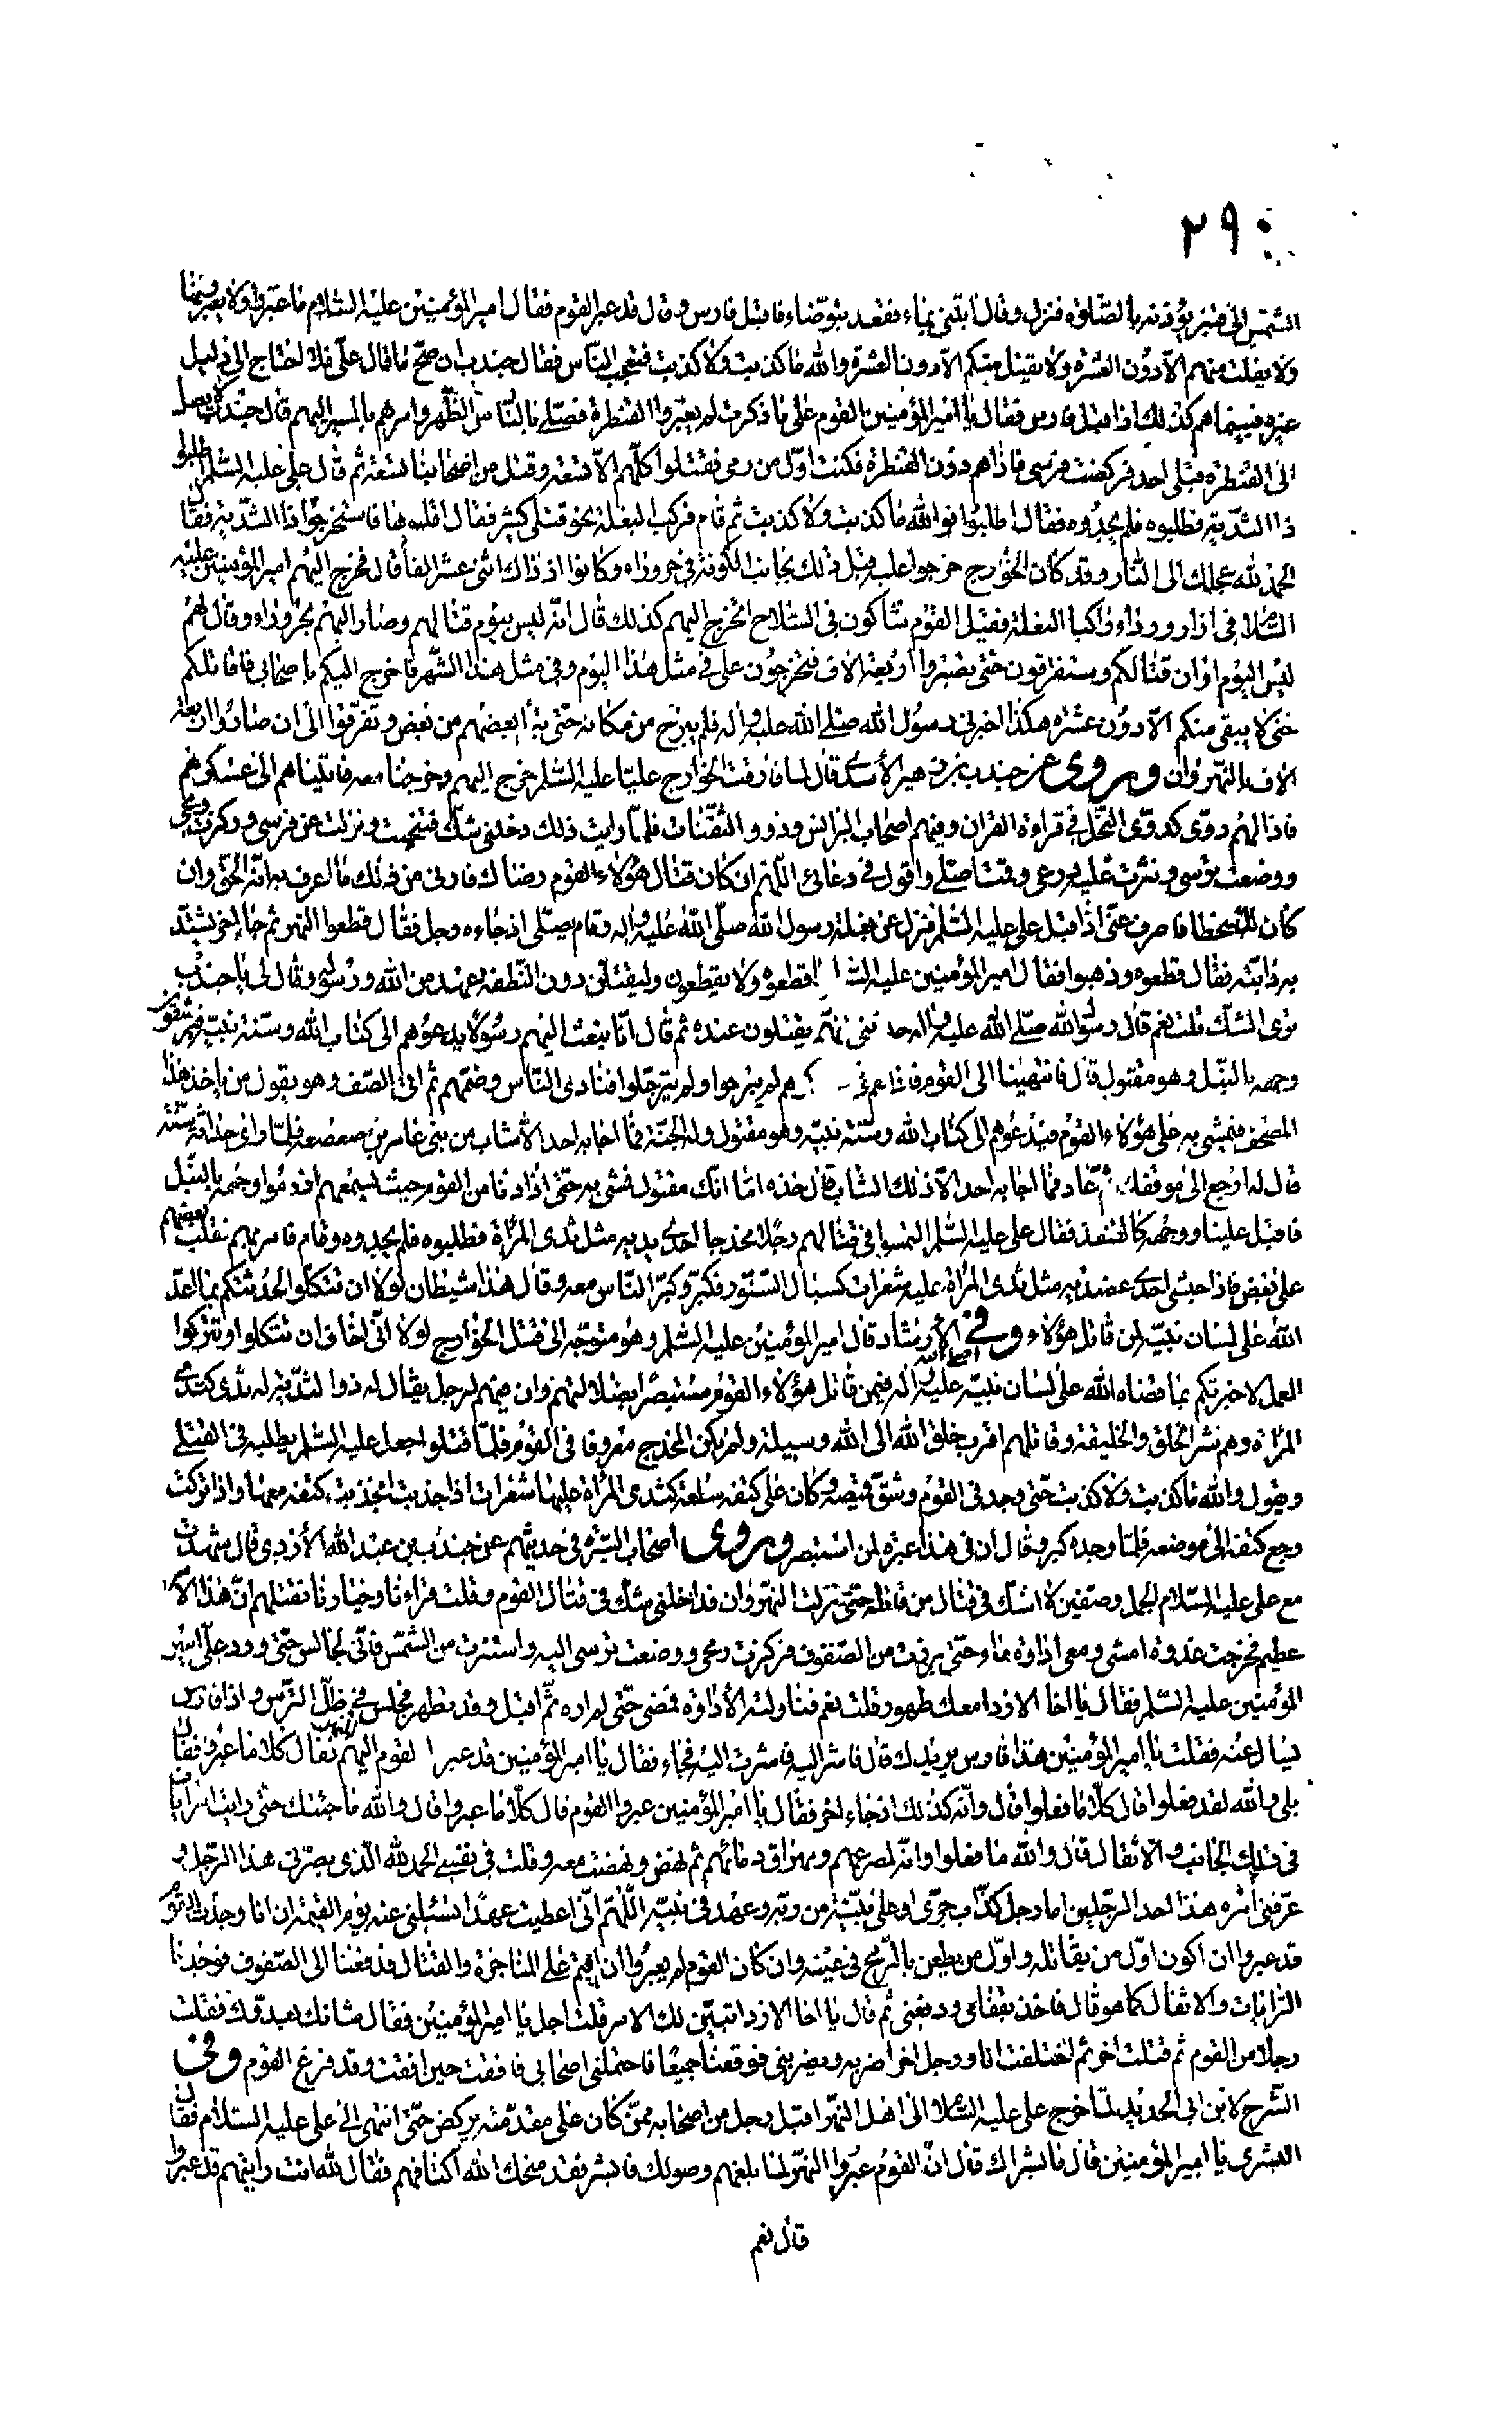 ٢٩٠
الشمس الى قنبر يؤذنه بالصلوة فنزل وقال ايتنى بماء فقعد يتوضّاء فاقبل فارس وقال قد عبر القوم فقال امير المؤمنين عليه السّلام ما عبروا ولا يعبرونها
ولا يفلت منهم الّا دون العشرة ولا يقتل منكم الّا دون العشرة والله ما كذبت ولا كذبت فتعجب النّاس فقال جندب ان صحّ ما قال علّى فلا احتاج الى دليل
غيره فبينما هم كذلك اذ اقبل فارس فقال يا امير المؤمنين القوم على ما ذكرت لم يعبروا القنطرة فصلّى بالنّاس الظّهر وامرهم بالمسير اليهم قال جندب لا يصل
الى القنطرة قبلى احد فركضت فرسى فاذا هم دون القنطرة فكنت اوّل من رمى فقتلوا كلّهم الّا تسعة وقتل من اصحابنا تسعة ثم قال على عليه السّلم اطلبوا
ذا الثدية فطلبوه فلم يجدوه فقال اطلبوا فوالله ما كذبت ولا كذبت ثم قام فركب البغلة نحو قتلى كثير فقال اقلبوها فاستخرجوا ذا الثّدية فقال
الحمد لله عجلك الى النار وقد كان الخوارج خرجوا عليه قبل ذلك بجانب الكوفة فى حروراء وكانوا اذ ذاك اثنى عشر الفا قال فخرج اليهم امير المؤمنين عليه
السّلام فى ازار ورداء راكبا البغلة فقيل القوم شاكون فى السّلاح اتخرج اليهم كذلك قال انّه ليس بيوم قتالهم وصار اليهم بحروراء وقال لهم
ليس اليوم اوان قتالكم وستفرقون حتى تصيروا اربعة الاف فتخرجون على فى مثل هذا اليوم وفى مثل هذا الشّهر فاخرج اليكم باصحابى فاقاتلكم
حتى لا يبقى منكم الّا دون عشرة هكذا اخبرنى رسول الله صلّى الله عليه واله فلم يبرح من مكانه حتّى تبرأ بعضهم من بعض وتفرّقوا الى ان صاروا اربعة
الاف بالنّهروان وروى عن جندب بن زهير الأسدى قال لما فارقت الخوارج عليّا عليه السّلم خرج اليهم وخرجنا معه فانتهينا الى عسكرهم
فاذا لهم دوّى كدوّى النّحل فى قراءة القران وفيهم اصحاب البرانس وذوو الثّفنات فلمّا رايت ذلك دخلنى شكّ فتنحّيت ونزلت عن فرسى وركزت رمحى
ووضعت ترسى ونثرت عليه درعى وقمت اصلّى واقول فى دعائى اللّهم ان كان قتال هؤلاء القوم رضا لك فارنى من ذلك ما اعرف به انّه الحقّ وان
كان لك سخطا فاصرف عنّى اذ اقبل على عليه السّلم فنزل عن بغلة رسول الله صلّى الله عليه واله وقام يصلّى اذ جاءه رجل فقال قطعوا النهر ثم جاء اخر يشتدّ
به دابته فقال قطعوه وذهبوا فقال امير المؤمنين عليه السّلم ما قطعوه ولا يقطعون وليقتلنّ دون النّطفة عهد من الله ورسوله وقال لى يا جندب
ترى الشكّ قلت نعم قال رسول الله صلّى الله عليه واله حدثنى انّهم يقتلون عنده ثم قال انّا نبعث اليهم رسولا يدعوهم الى كتاب الله وسنّة نبيّه فيرشقون
وجهه بالنّبل وهو مقتول قال فانتهينا الى القوم فاذا هم فى هم لم يبرحوا ولم يترحّلوا فنادى النّاس وضمّهم ثم اتى الصّف وهو يقول من ياخذ هذا
المصحف فيمشى به على هؤلاء القوم فيدعوهم الى كتاب الله وسنّة نبيّه وهو مقتول وله الجنّة فما اجابه احد الّا شاب من بنى عامر بن صعصعه فلمّا راى حداثة سنّه
قال له ارجع الى موقفك ثم عاد فما اجابه احد الّا ذلك الشاب قال خذه امّا انّك مقتول فمشى به حتّى اذا دنا من القوم حيث يسمعهم اذ رموا وجهه بالنّبل
فاقبل علينا ووجهه كالقنفذ فقال على عليه السّلم التمسوا فى قتالهم رجلا مخدجا احدى يديه مثل ثدى المرأة فطلبوه فلم يجدوه وقام فامر بهم نقلب بعضهم
على بعض فاذا حبشى احدى عضديه مثل ثدى المرأة عليه شعرات كسبال السّنّور فكبّر وكبّر النّاس معه وقال هذا شيطان لولا ان تتكلوا لحدثتكم بما اعدّ
الله على لسان نبيّه لمن قاتل هؤلاء وفى الأرشاد قال امير المؤمنين عليه السّلم وهو متوجّه الى قتل الخوارج لولا انّى اخاف ان تتكلوا وتتركوا
العمل لاخبرتكم بما قضاه الله على لسان نبيّه عليه واله فيمن قاتل هؤلاء القوم مستبصرا بضلالتهم وان فيهم لرجل يقال له ذوا الثّدية له ثدى كثدى
المرأة وهم شر الخلق والخليقة وقاتلهم اقرب خلق الله الى الله وسيلة ولم يكن المخدج معروفا فى القوم فلمّا قتلوا جعل عليه السّلم يطلبه فى القتلى
ويقول والله ما كذبت ولا كذبت حتّى وجد فى القوم وشقّ قميصه وكان على كتفه سلعة كثدى المرأة عليها شعرات اذا جذبت انجذبت كتفه معها واذا تركت
رجع كتفه الى موضعه فلمّا وجده كبر وقال ان فى هذا عبرة لمن استبصر وروى اصحاب السّيرة فى حديثهم عن جندب بن عبد الله الأزدى قال شهدت
مع على عليه السّلام الجمل وصفّين لا اشكّ فى قتال من قاتله حتّى نزلت النهروان فداخلنى شكّ فى قتال القوم وقلت قراءنا وخيارنا نقتلهم انّ هذا الأمر
عظيم فخرجت غدوة امشى ومعى اداوة ماء حتّى برزت من الصّفوف فركزت رمحى ووضعت ترسى اليه واستترت من الشّمس فانّى لجالس حتّى ورد علّى امير
المؤمنين عليه السّلم فقال يا اخا الازد امعك طهور قلت نعم فناولته الأداوة فمضى حتّى لم اره ثمّ اقبل وقد تطهر فجلس فى ظلّ التّرس واذا فارس
يسال عنه فقلت يا امير المؤمنين هذا فارس يريدك قال فاشر اليه فاشرت اليه فجاء فقال يا امير المؤمنين قد عبر القوم اليهم النهر فقال كلّا ما عبروا فقال
بلى والله لقد فعلوا قال كلّا ما فعلوا قال وانّه كذلك اذ جاء اخر فقال يا امير المؤمنين عبروا القوم قال كلّا ما عبروا قال والله ما جئتك حتى رايت الرايات
فى ذلك الجانب والاثقال قال والله ما فعلوا وانّه لمصرعهم ومهراق دمائهم ثم نهض ونهضت معه وقلت فى نفسى الحمد لله الّذى بصّرنى هذا الرّجل و
عرّفنى امره هذا احد الرّجلين اما رجل كذّاب جرّى او على بيّنة من ربّه وعهد فى نبيّه اللّهمّ انّى اعطيت عهدا تسئلنى عنه يوم القيمة ان انا وجدت القوم
قد عبروا ان اكون اوّل من يقاتله واوّل من يطعن بالرّمح فى عينه وان كان القوم لم يعبروا ان اقيم على المناجزة والقتال فدفعنا الى الصّفوف فوجدنا
الرّايات والاثقال كما هو قال فاخذ بقفاى ودفعنى ثم قال يا اخا الازد اتبيّن لك الامر قلت اجل يا امير المؤمنين فقال شانك بعدوّك فقتلت
رجلا من القوم ثم قتلت اخر ثم اختلفت انا ورجل اخر اضربه ويضربنى فوقعنا جميعا فاحتملنى اصحابى فافقت حين افقت وقد فرغ القوم وفى
الشّرح لابن ابى الحديد لمّا خرج على عليه السّلام الى اهل النهر اقبل رجل من اصحابه ممّن كان على مقدّمته يركض حتّى انتهى الى على عليه السّلام فقال
البشرى يا امير المؤمنين قال ما بشراك قال انّ القوم عبروا النهر لمّا بلغهم وصولك فابشر فقد منحك الله اكتافهم فقال لله انت رايتهم قد عبروا
قال نعم